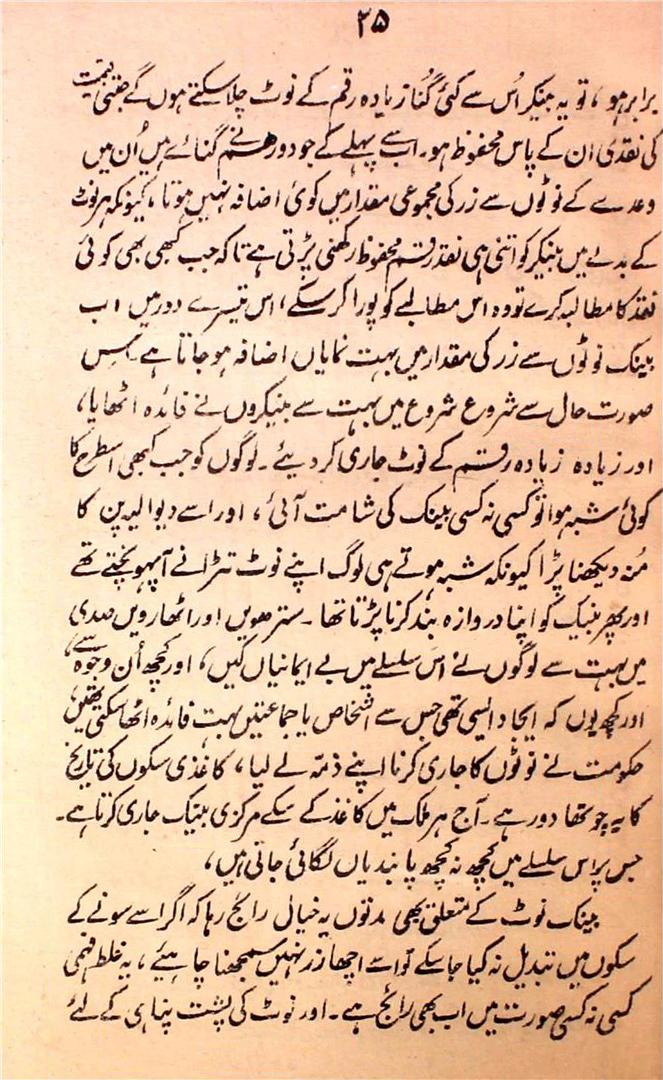 ۳۵
برابر ہو، تو یہ بینکر اُس سے کئی گُنا زیادہ رقم کے نوٹ چلا سکتے ہوں گے جتنی قیمت
کی نقدی ان کے پاس محفوظ ہو۔ اب سے پہلے کے جو دور ہم نے گنائے ہیں اُن میں
وعدے کے نوٹوں سے زر کی مجموعی مقدار میں کوئی اضافہ نہیں ہوتا، کیونکہ ہر نوٹ
کے بدلے میں بینکر کو اتنی ہی نقد رقم محفوظ رکھنی پڑتی ہے تاکہ جب کبھی بھی کوئی
نقد کا مطالبہ کرے تو وہ اس مطالبے کو پورا کر سکے، اس تیسرے دور میں اب
بینک نوٹوں سے زر کی مقدار میں بہت نمایاں اضافہ ہو جاتا ہے۔ اس
صورت حال سے شروع شروع میں بہت سے بینکروں نے فائدہ اٹھایا،
اور زیادہ زیادہ رقم کے نوٹ جاری کر دیئے۔ لوگوں کو جب کبھی اسطرح کا
کوئی شبہ ہوا تو کسی نہ کسی بینک کی شامت آئی، اور اسے دیوالیہ پن کا
مُنہ دیکھنا پڑا کیونکہ شبہ ہوتے ہی لوگ اپنے نوٹ تڑانے آ پہونچتے تھے
اور پھر بینک کو اپنا دروازہ بند کرنا پڑتا تھا۔ سترھویں اور اٹھارویں صدی
میں بہت سے لوگوں نے اس سلسلے میں بے ایمانیاں کیں، اور کچھ اُن وجوہ سے،
اور کچھ یوں کہ ایجاد ایسی تھی جس سے اشخاص یا جماعتیں بہت فائدہ اٹھا سکتی تھیں
حکومت نے نوٹوں کا جاری کرنا اپنے ذمّہ لے لیا، کاغذی سکوں کی تاریخ
کا یہ چوتھا دور ہے۔ آج ہر ملک میں کاغذ کے سکے مرکزی بینک جاری کرتا ہے۔
جس پر اس سلسلے میں کچھ نہ کچھ پابندیاں لگائی جاتی ہیں،
بینک نوٹ کے متعلق بھی مدتوں یہ خیال رائج رہا کہ اگر اسے سونے کے
سکوں میں تبدیل نہ کیا جا سکے تو اسے اچھا زر نہیں سمجھنا چاہیئے، یہ غلط فہمی
کسی نہ کسی صورت میں اب بھی رائج ہے۔ اور نوٹ کی پشت پناہی کے لئے